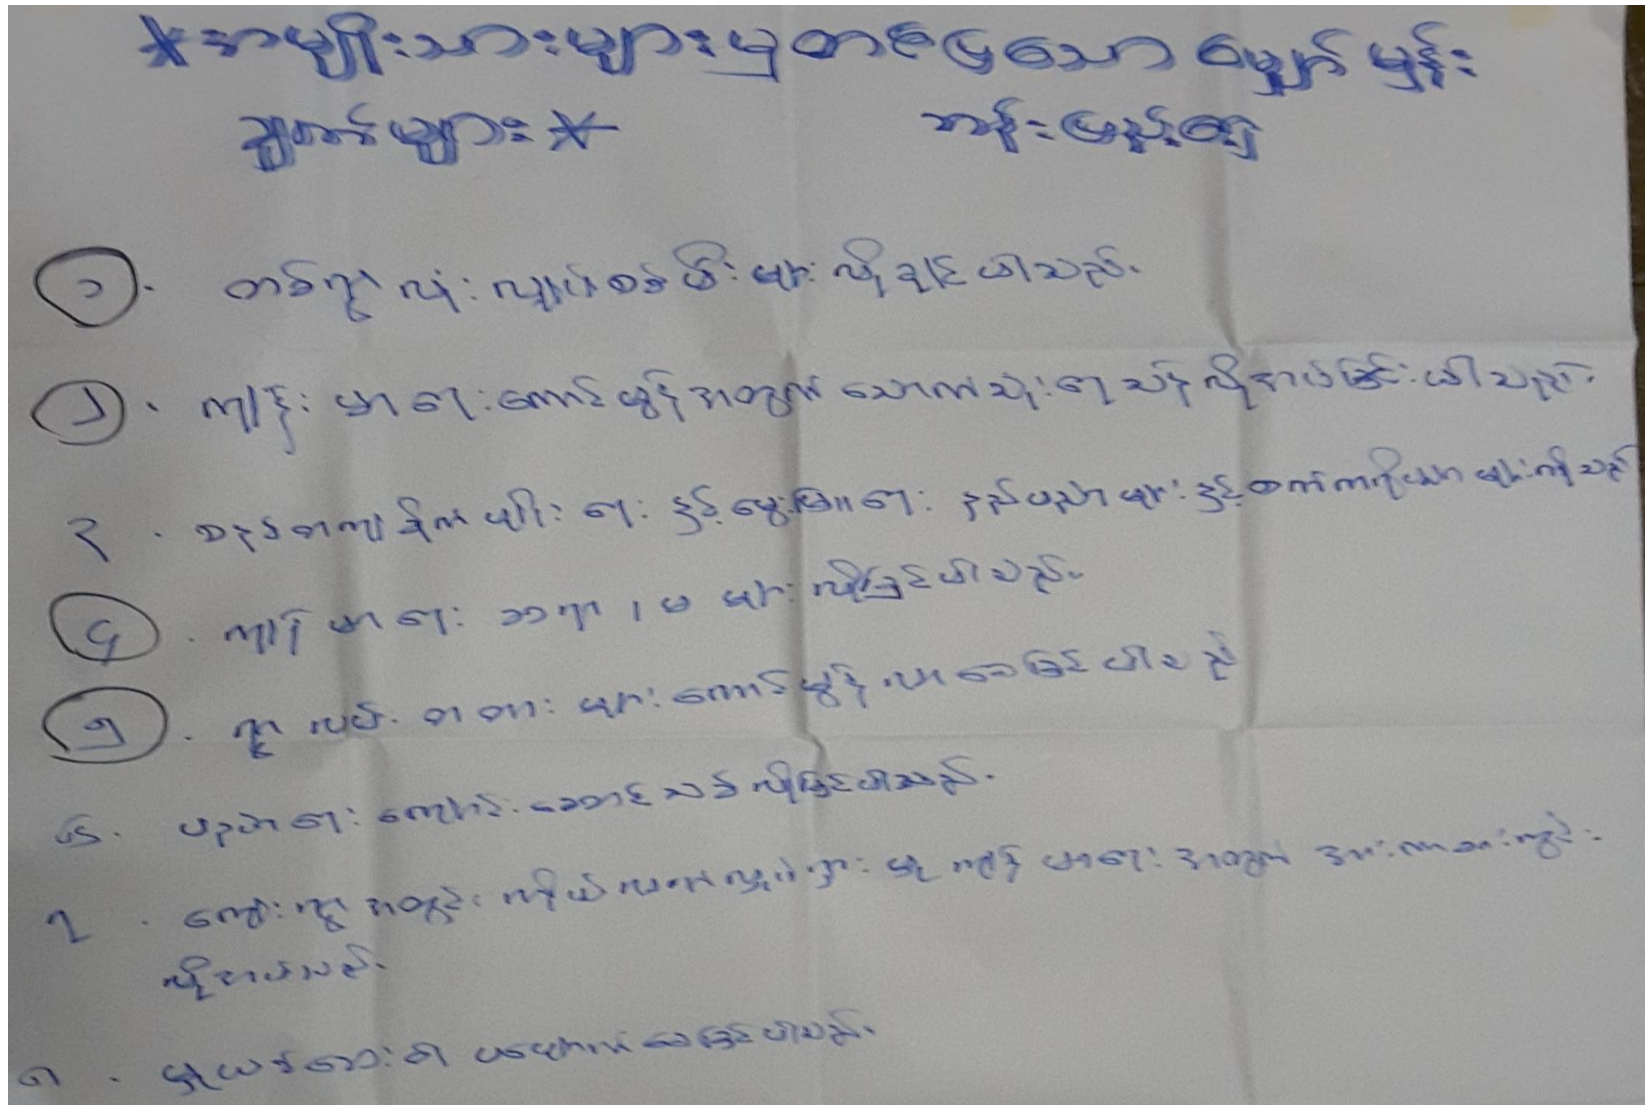 *အမျိုးသားများမှတင်ပြသော မျှော်မှန်း
ချက်များ* ဘန်းမြည်ရွာ
၁. တစ်ရွာလုံး လျှပ်စစ်မီးများလိုချင်ပါသည်.
၂. ကျန်းမာရေးကောင်မွန်အတွက် သောက်သုံးရေသန့်လိုအပ်ခြင်းပါသည်.
၃. စနစ်တကျစိုက်ပျိုးရေးနှင့်မွေးမြူရေးနည်းပညာများနှင့်စက်ကရိယာများကိုသည်
၄. ကျန်မာရေး ဆရာ၊မ များလိုခြင်ပါသည်.
၅. ရွာလမ်းတတားများကောင်မွန်လာစေခြင်ပါသည်
၆. ပညာရေးကျောင်းဆောင်သစ်လိုခြင်ပါသည်.
၇. ကျေးရွာအတွင်းကိုယ်လက်လှုပ်ရှားမှုကျန်မာရေးအတွက်အားကစားကွင်း
လိုအပ်သည်.
၈. မူးယစ်ဆေးဝါးပပျောက်စေခြင်ပါသည်.